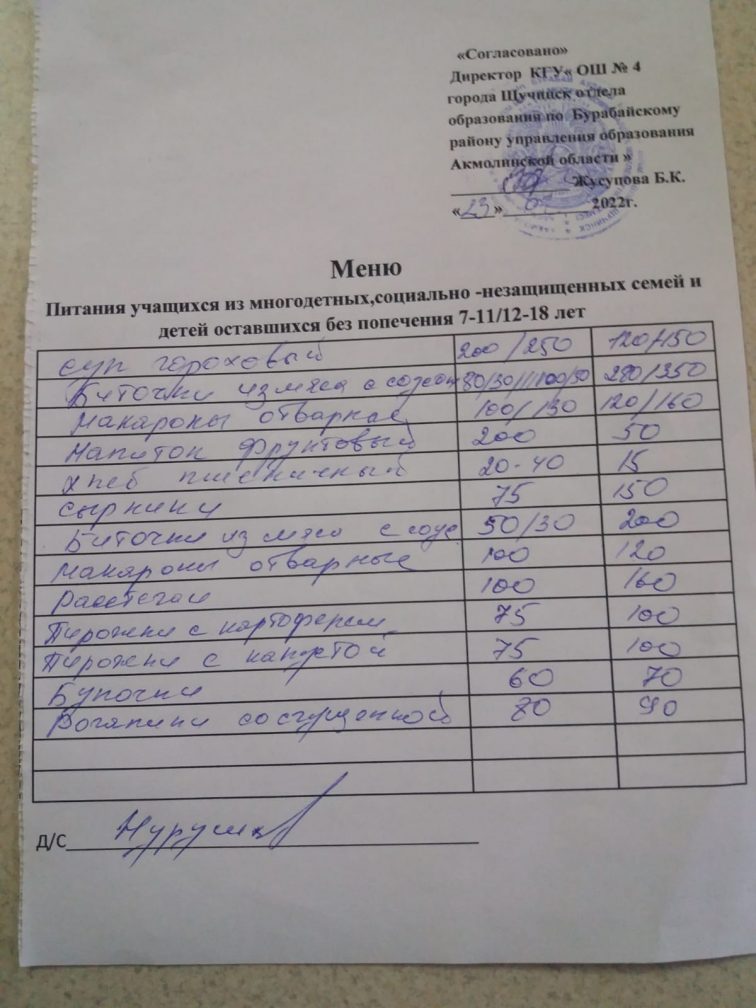 «Согласовано»
Директор КГУ« ОШ № 4
города Щучинск отдела
образования по Бурабайскому
району управления образования
Акмолинской области »
Жусупова Б.К.
«23» 2022г.
Меню
Питания учащихся из многодетных,социально -незащищенных семей и
детей оставшихся без попечения 7-11/12-18 лет
суп гороховый 200/250 120/150
Биточки из мяса с соусом 80/30///100/50 280/350
Макароны отварные 100/130 120/160
Напиток фруктовый 200 50
хлеб пшеничный 20-40 15
сырники 75 150
Биточки из мяса с соус 50/30 200
макароны отварные 100 120
Расстегаи 100 160
Пирожки с картофелем 75 100
Пирожки с капустой 75 100
Булочки 60 70
Рогалики со сгущенкой 80 90
Д/С